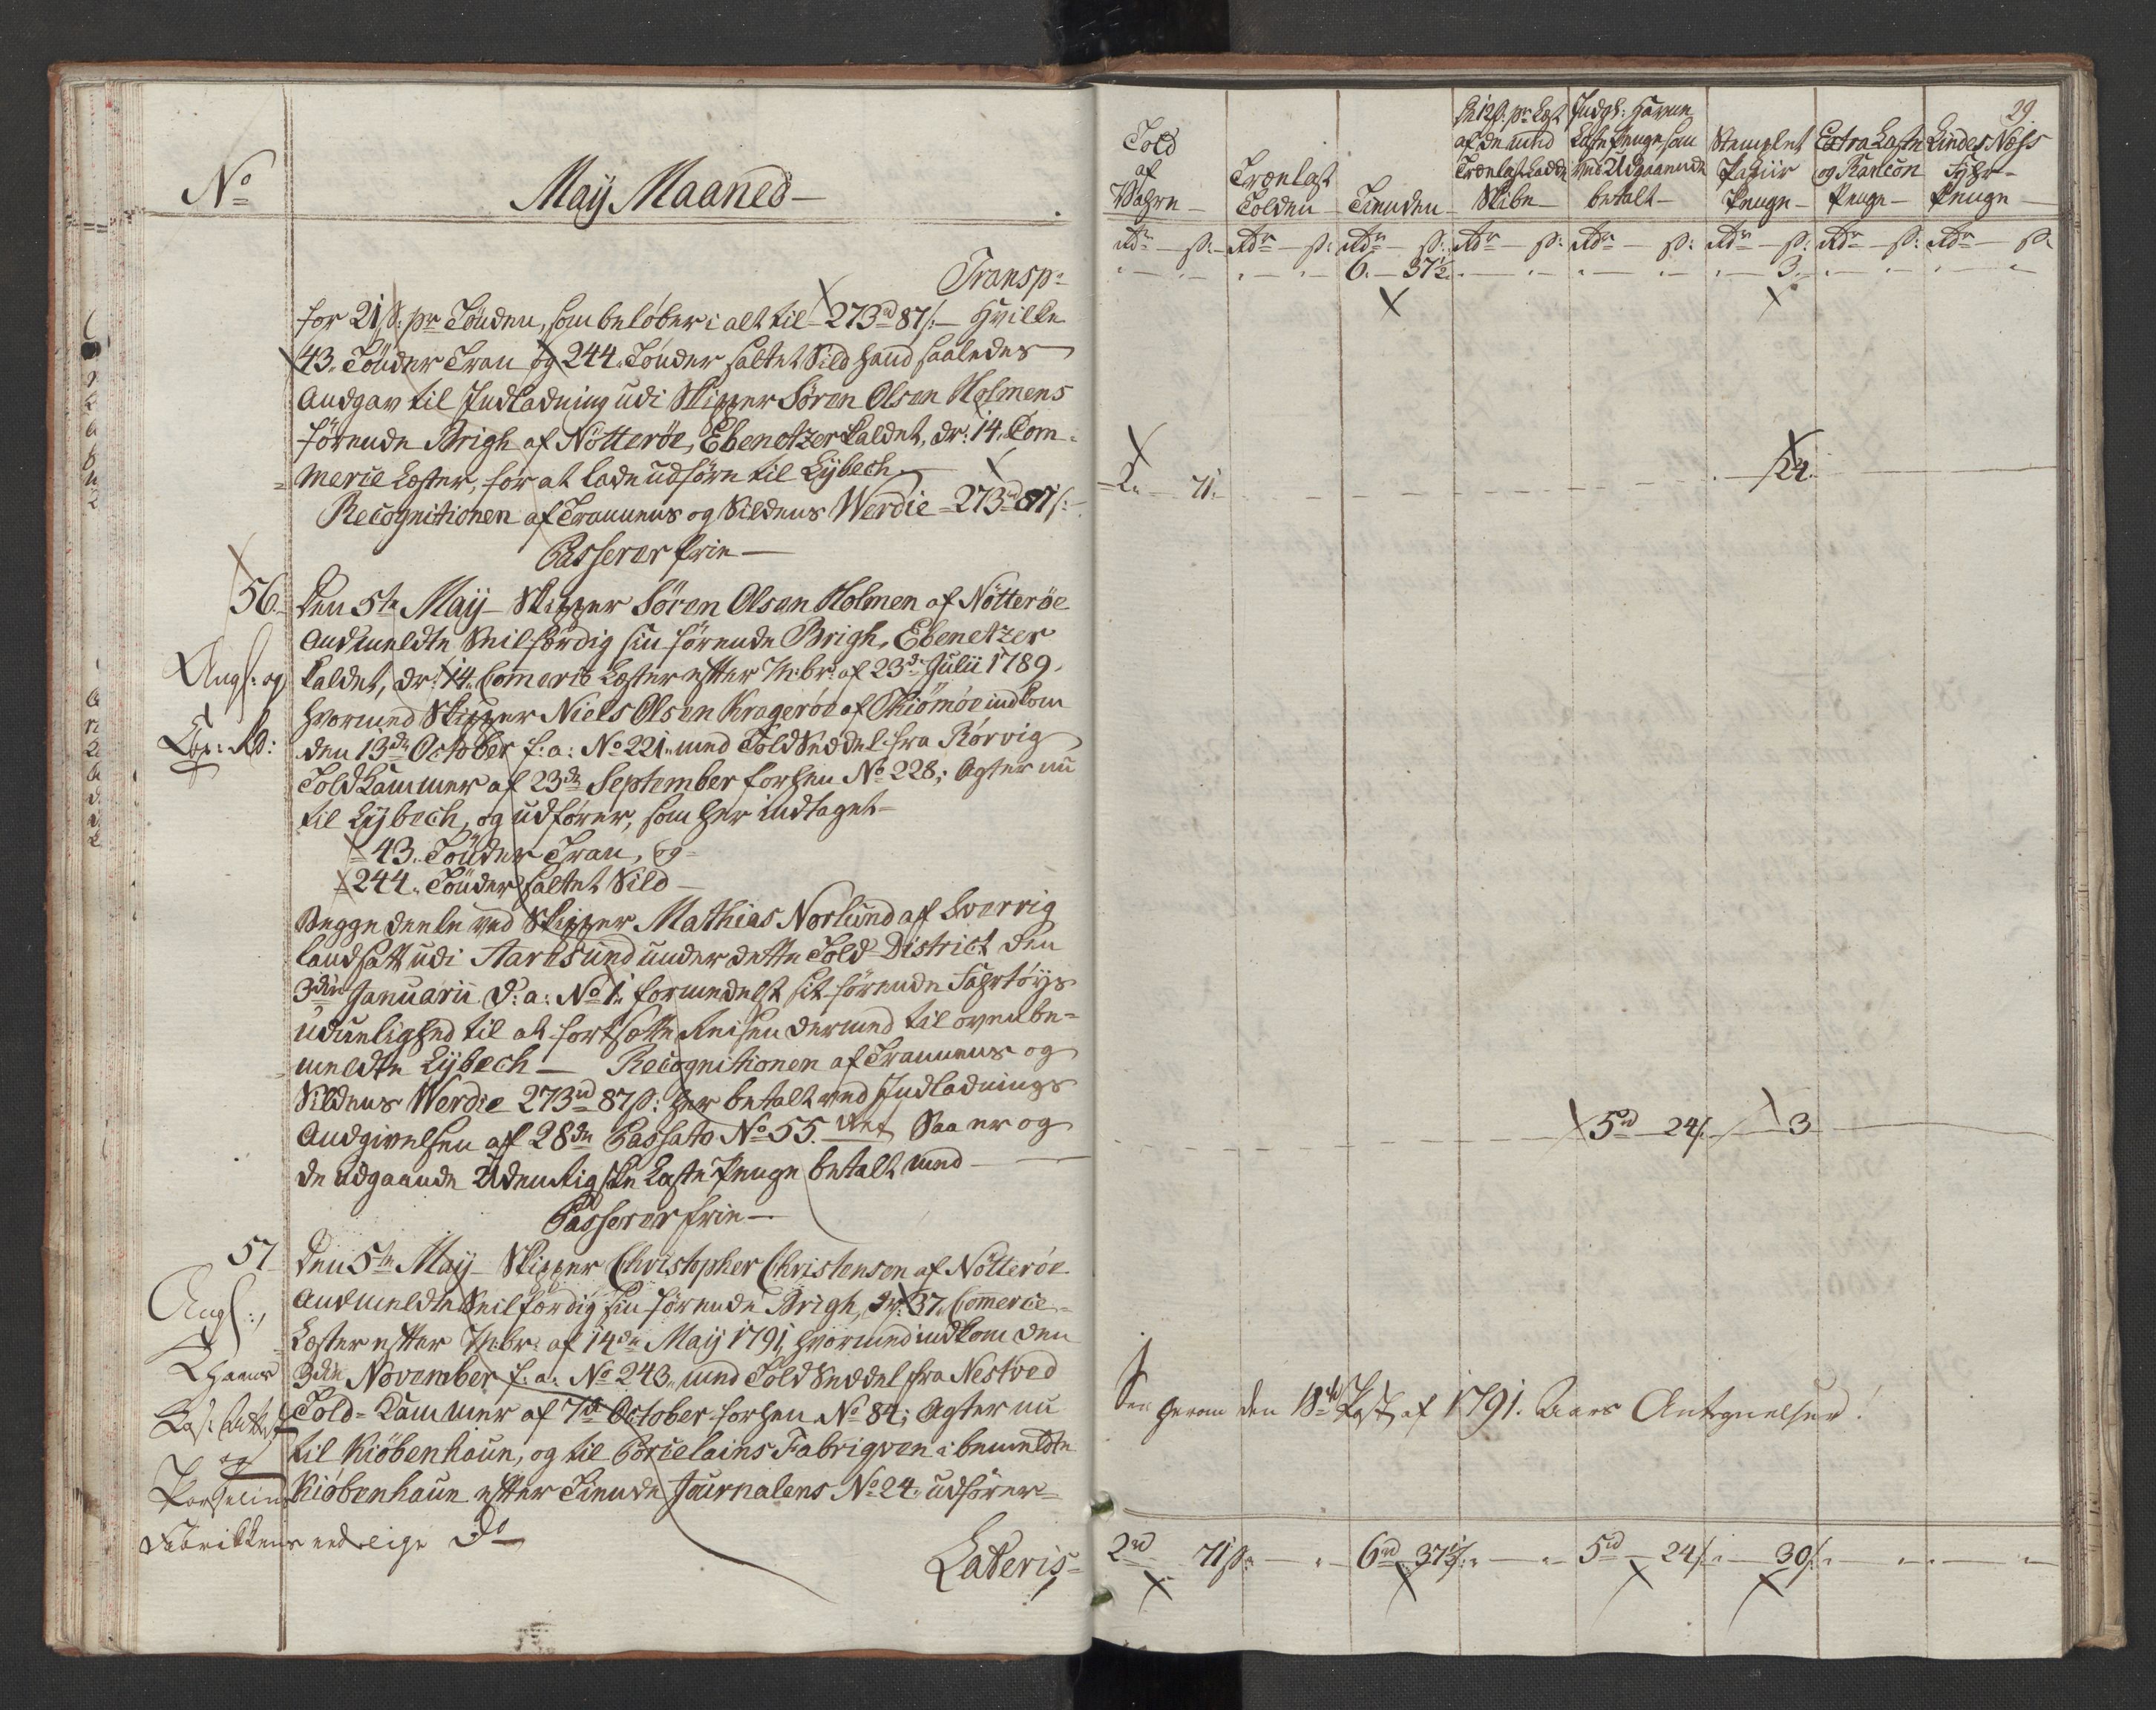 No
May Maaned
Transp:
for 21 s: pr Tönden, som beløber i alt til 273rd 87 s: Hvilke
43. Tönder Tran og 244. Tönder saltet Sild hand saaledes
Andgav til Indladning udi Skipper Sören Olsen Holmens
förende Brigh af Nötteröe, Ebenetzer kaldet, dr: 14. Com-
merce Lester, for at lade udföre til Lÿbech.
Recognitionen af Trannens og Sildens Werdie 273rd 87 s:
Passerer frie
56. Den 5te Maÿ Skipper Sören Olsen Holmen af Nötteröe
Andmeldte Seilfærdig sin förende Brigh, Ebenetzer
Angf: og
kaldet, dr: 14. Commerce Læster efter M:br: af 23de Julii 1789.
hvormed Skipper Niels Olsen Krageröe af Thiömöe indkom
den 13de October f: a: No 221. med Told Seddel fra Rörvig
Told Kammer af 23de September forhen No 228; Agter nu
til Lÿbech, og udförer, som her indtaget
43. Tönder Tran, og
244. Tönder saltet Sild
Begge deele ved Skipper Mathias Norlund af Sverrig
landsatt udi Aarhsund under dette Told District den
3die Januarii d: a: No 1. formedelst sit förende Fahrtöÿs
uduelighed til at fortsætte Reisen dermed til ovenbe-
meldte Lÿbech Recognitionen af Trannens og
Sildens Werdie 273rd 87 s: her betalt ved Indladnings
Andgivelsen af 28de Passato No 55. Saa er og
de udgaaende Udenrigske Læste Penge betalt med
Passerer frie
57 Den 5te Maÿ Skipper Christopher Christensen af Nötteröe
Andmeldte Seilfærdig sin förende Brigh, dr: 37. Commerce
Angf:
Læster efter M:br: af 14de Maÿ 1791, hvormed indkom den
3die November f: a: No 243. med Told Seddel fra Nestved
Told-Kammer af 7de October forhen No 84; Agter nu
til Kiöbenhaun, og til Porcelains Fabriqven i bemeldte
og
Kiöbenhaun efter Tiende Journalens No 24. udförer
Porselins
Fabrikkens
Lateris
29.
Told
af
Wahre
Trælast
Tolden
Tienden
à 12 s. pr Læst
af de med
Trælast Ladde
Skibe
Indgl: Havne
Læste Penge som
ved Udgaaende
betalt
Stemplet
Papiir
Penge
Extra Læste
og Rancon
Penge
Lindes Næss
Fÿhr-
Penge
Rdr s: Rdr s: Rdr s: Rdr s: Rdr s: Rdr s: Rdr s: Rdr s:
6. 37½. 3.
2. 71. 24.
5rd 24 s. 3
See herom den 18de Post af 1791. Aars Antegnelser!
2rd 71 s: 6rd 37½ s. 5rd 24 s. 30 s.